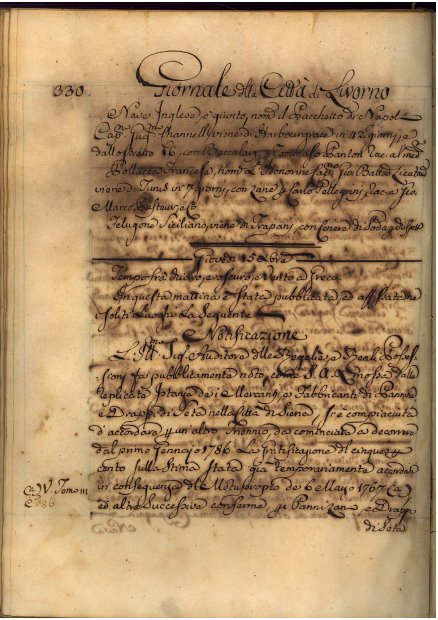 330. Giornale della Città di Livorno
Nave Inglese, è giunto, nom. il Pacchetto di Napol
Cap. Channell viene di Harbourgrace in 42 giorni, e
dallo stretto 16, con Baccalari, a Tommaso Panton rac. al med.
Pollacca Francese, nom. L'Honorine Cap. Gio. Batta
viene di Tunis in 7 giorni, con Lane, a Carlo Pellegrini, rac. a Gio.
Marco
Felugone Siciliano, viene di Trapani, con Cenere di Soda, e di
Giovedì 15
Tempo fra duovo, e oscuro, e vento a Greco
In questa mattina è stata pubblicata, ed affissate ne
soliti Luoghi La Seguente
Notificazione
L'Ill.mo Sig. Auditore delle Regalie, e Reali Posses-
sioni fa pubblicamente noto, come S. A. R. mossa dalle
replicate Istanze dei Mercanti, e Fabbricanti di Pannine
e Drappi di Seta nella Città di Siena, si è compiaciuta
d'accordare p un altro Triennio, da cominciare a decorrere
dal primo Gennajo 1786 La gratificazione del cinque p
cento sulla Stima Stata già temporariamente accordata
in conseguenza del Motuproprio de 6 Mayo 1767 (a)
ed altre Successive conferme, p Panni Lana e Drappi
di Seta
(a) V. Tomo III
C 786